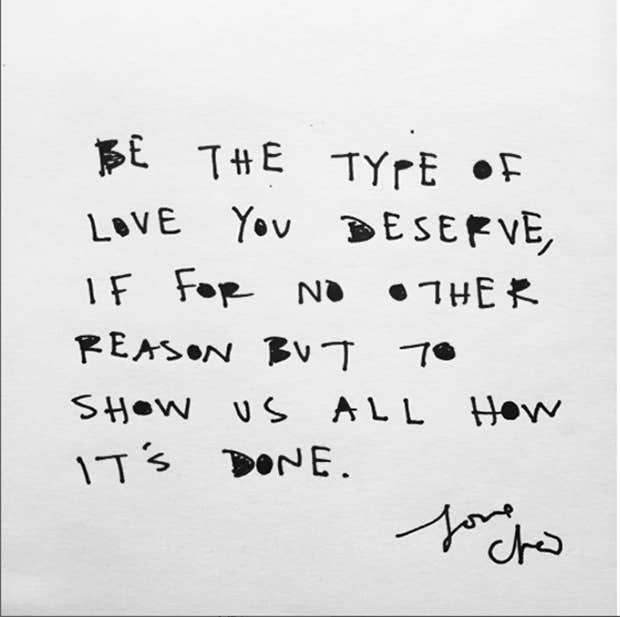 BE THE TYPE OF
LOVE YOU DESERVE,
IF FOR NO OTHER
REASON BUT TO
SHOW US ALL HOW
IT'S DONE.
love
chei